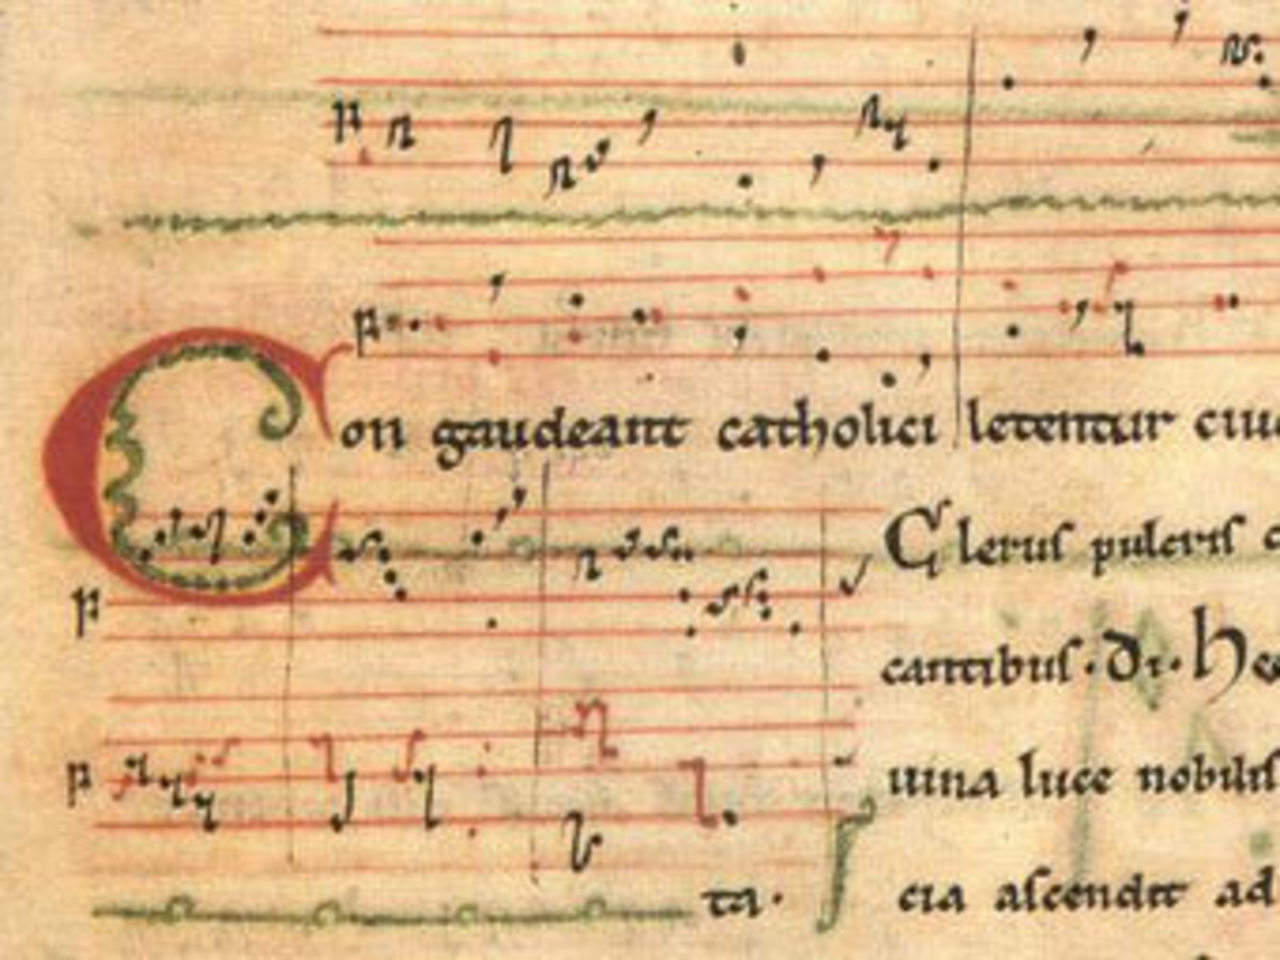 Con gaudeant catholici letentur ciue
Clerus pulcris c
cantibus · di · hec
uina luce nobilis
ta · cia ascendit ad